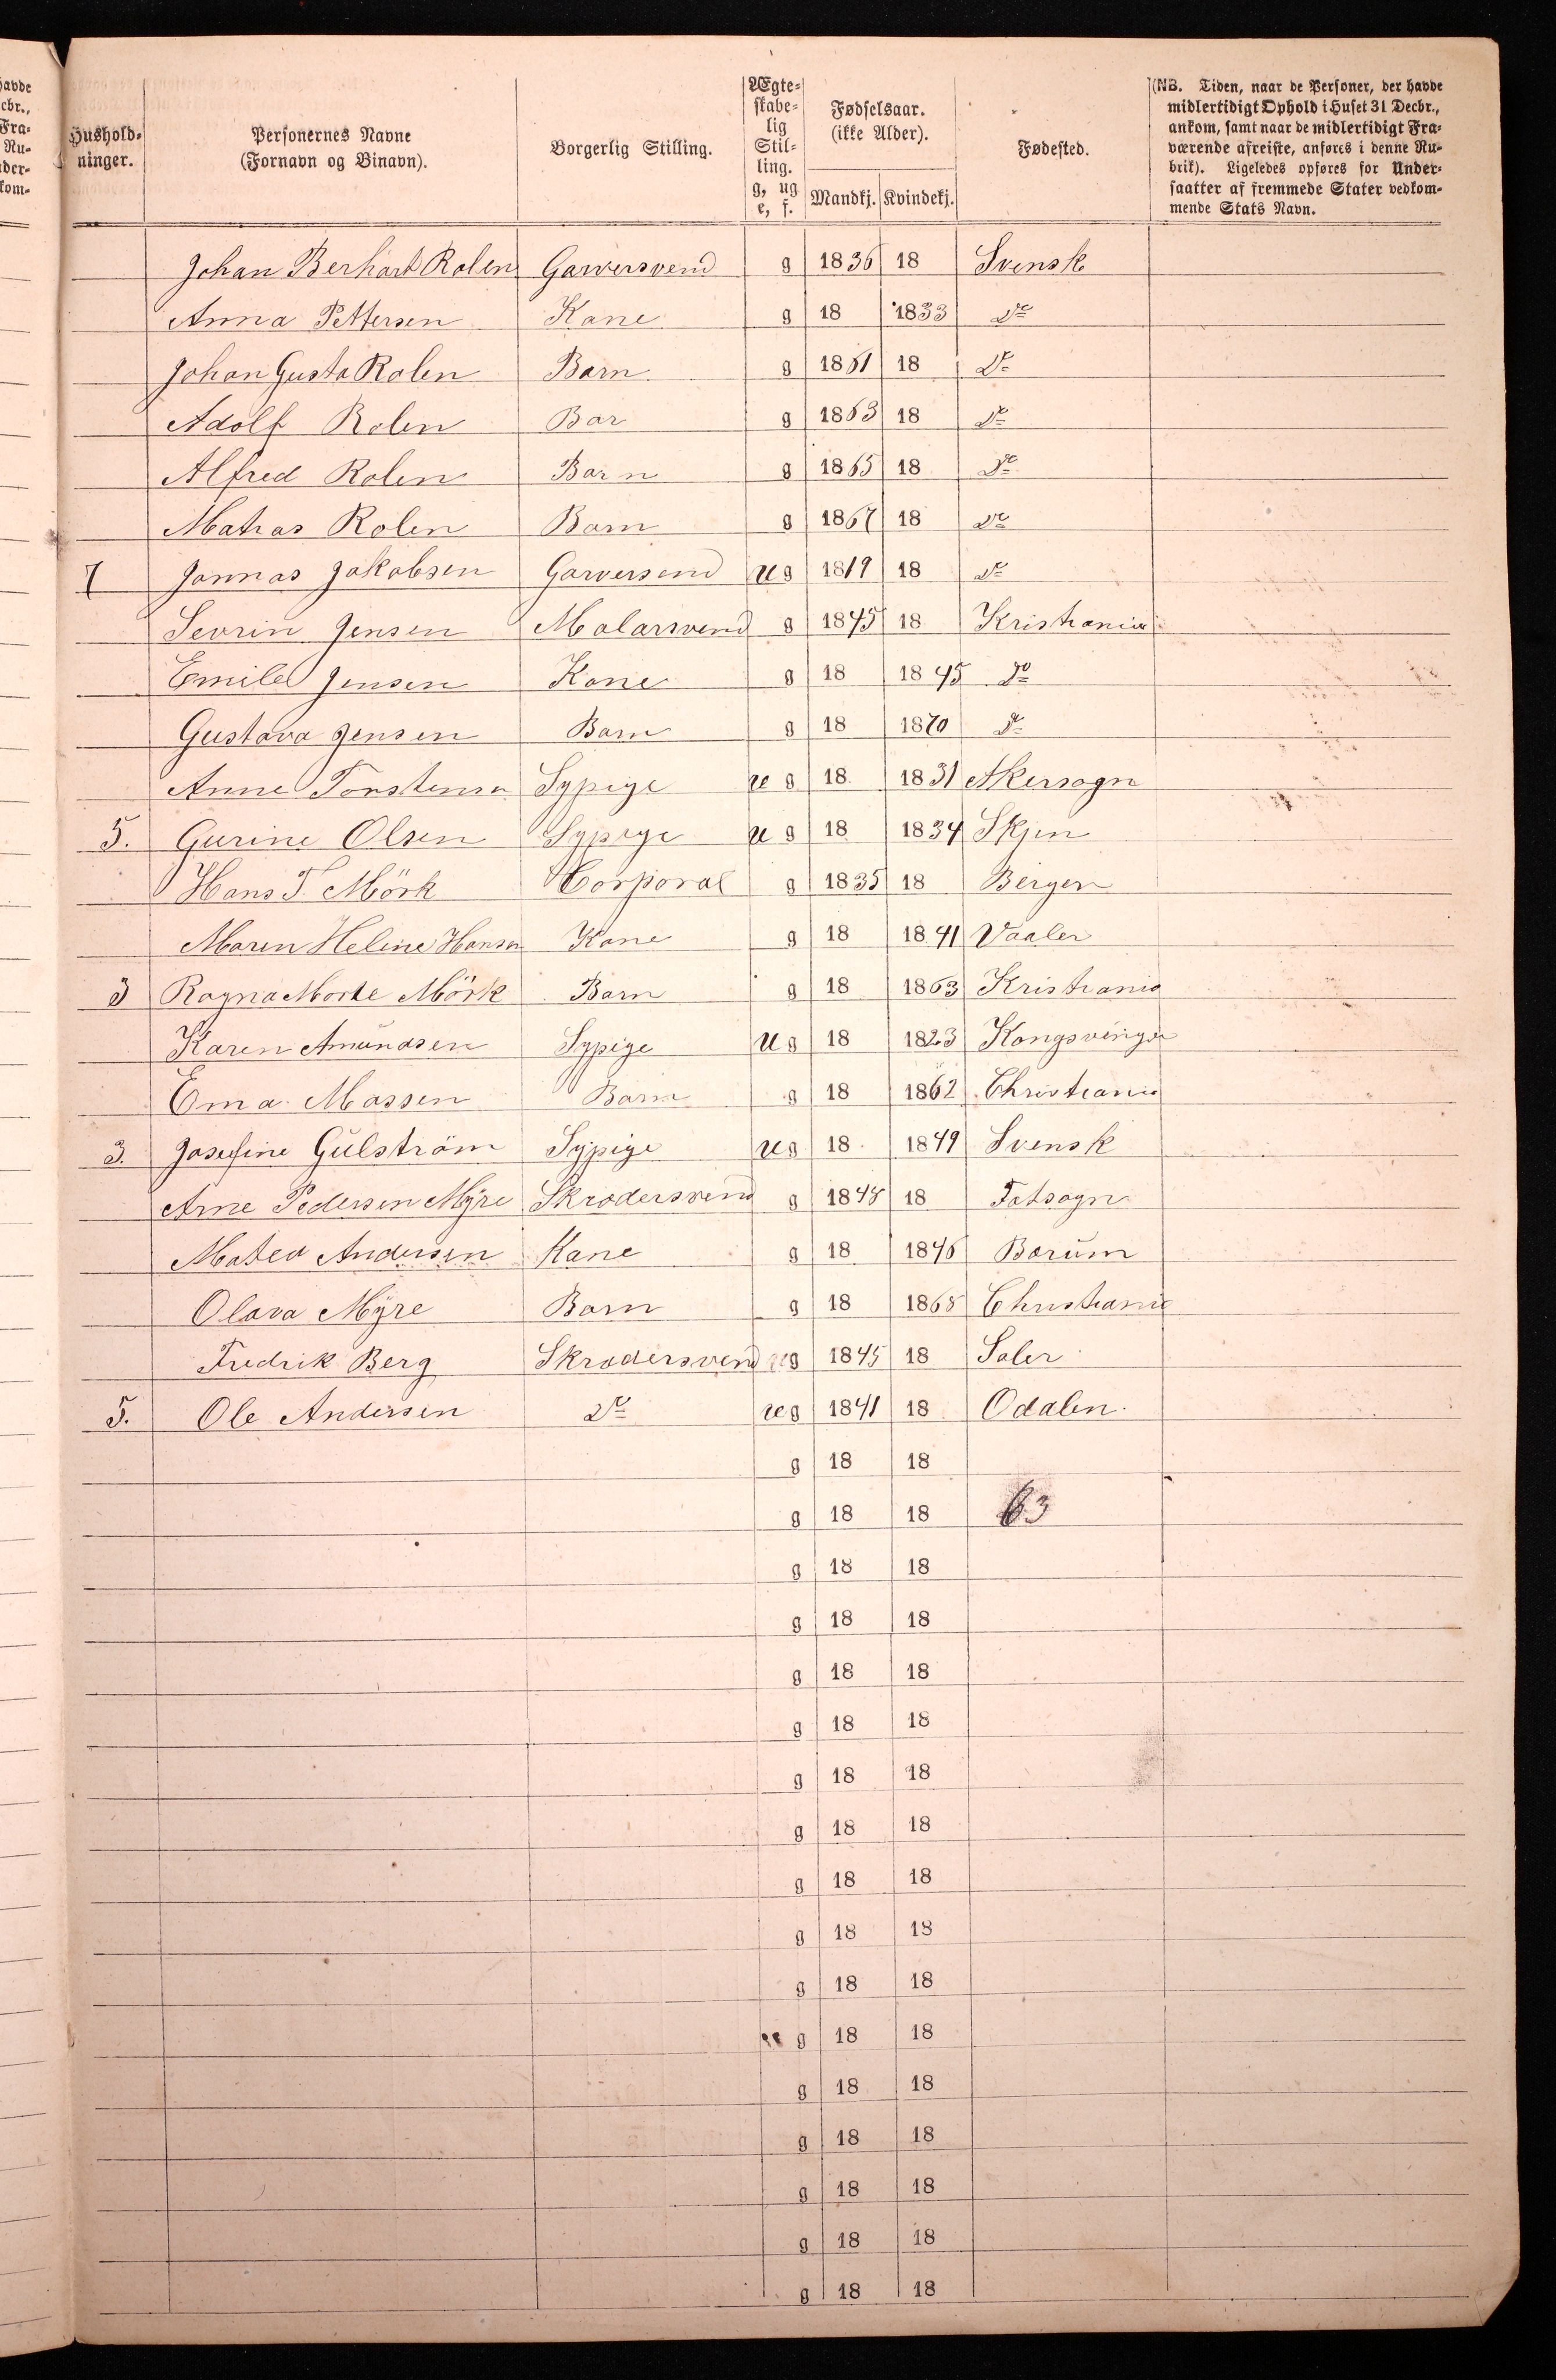 Hushold-
ninger.
Personernes Navne
(Fornavn og Binavn).
Borgerlig Stilling.
Ægte-
skabe-
lig
Stil-
ling.
g, ug
e, f.
Fødselsaar.
(ikke Alder).
Mandkj. Kvindekj.
Fødested.
(NB. Tiden, naar de Personer, der havde
midlertidigt Ophold i Huset 31 Decbr.,
ankom, samt naar de midlertidigt Fra-
værende afreiste, anføres i denne Ru-
brik). Ligeledes opføres for Under-
saatter af fremmede Stater vedkom-
mende Stats Navn.
Johan Berhart Rolen Garversvend g 1836 18 Svensk
Anna Pettersen Kone g 18 1833 Do
Johan Gusta Rolen Barn g 1861 18 Do
Adolf Rolen Bar g 1863 18 Do
Alfred Rolen Barn g 1865 18 Do
Matias Rolen Barn g 1867 18 Do
7 Jonnas Jakobsen Garversend ug 1819 18 Do
Sevrin Jensen Malarsvend g 1845 18 Kristiania
Emile Jensen Kone g 18 1845 Do
Gustava Jensen Barn g 18 1870 Do
Anne Torstensn Sypige ug 18 1831 Akersogn
5. Gurine Olsen Sypige ug 18 1834 Skjen
Hans T. Mörk Corporal g 1835 18 Bergen
Maren Heline Hansen Kone g 18 1841 Vaaler
3 Ragna Marte Mörk Barn g 18 1863 Kristiania
Karen Amundsen Sypige ug 18 1823 Kongsvinger
Ema Massen Barn g 18 1862 Christiania
3. Josefine Gulström Sypige ug 18 1849 Svensk
Arne Pedersen Myre Skrædersvend g 1848 18 Fotsogn
Matea Andersen Kane g 18 1846 Borum
Olava Myre Barn g 18 1868 Christiania
Fredrik Berg Skrædersvend ug 1845 18 Soler
5. Ole Andersen Do ug 1841 18 Odalen.
g 18 18
g 18 18 63
g 18 18
g 18 18
g 18 18
g 18 18
g 18 18
g 18 18
g 18 18
g 18 18
g 18 18
g 18 18
g 18 18
g 18 18
g 18 18
g 18 18
g 18 18